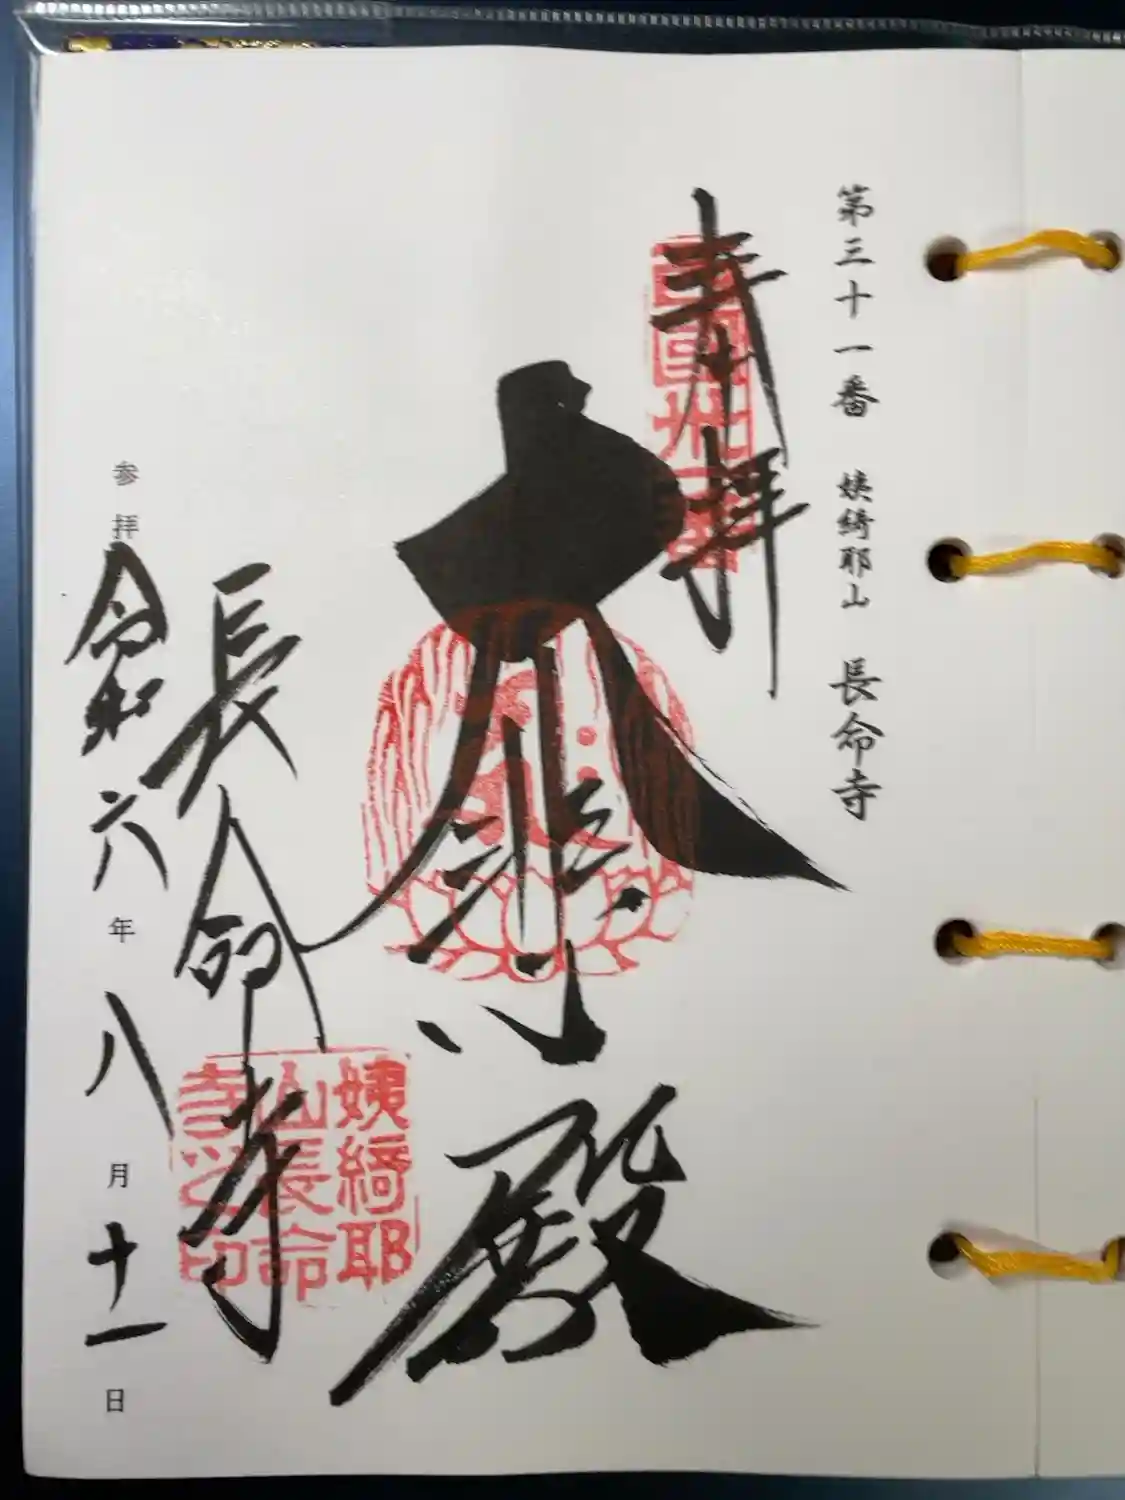 第三十一番 姨綺耶山 長命寺
奉拝
西国卅一番
大悲殿
姨綺耶
山長命
寺之印
長命寺
参拝 令和六年八月十一日